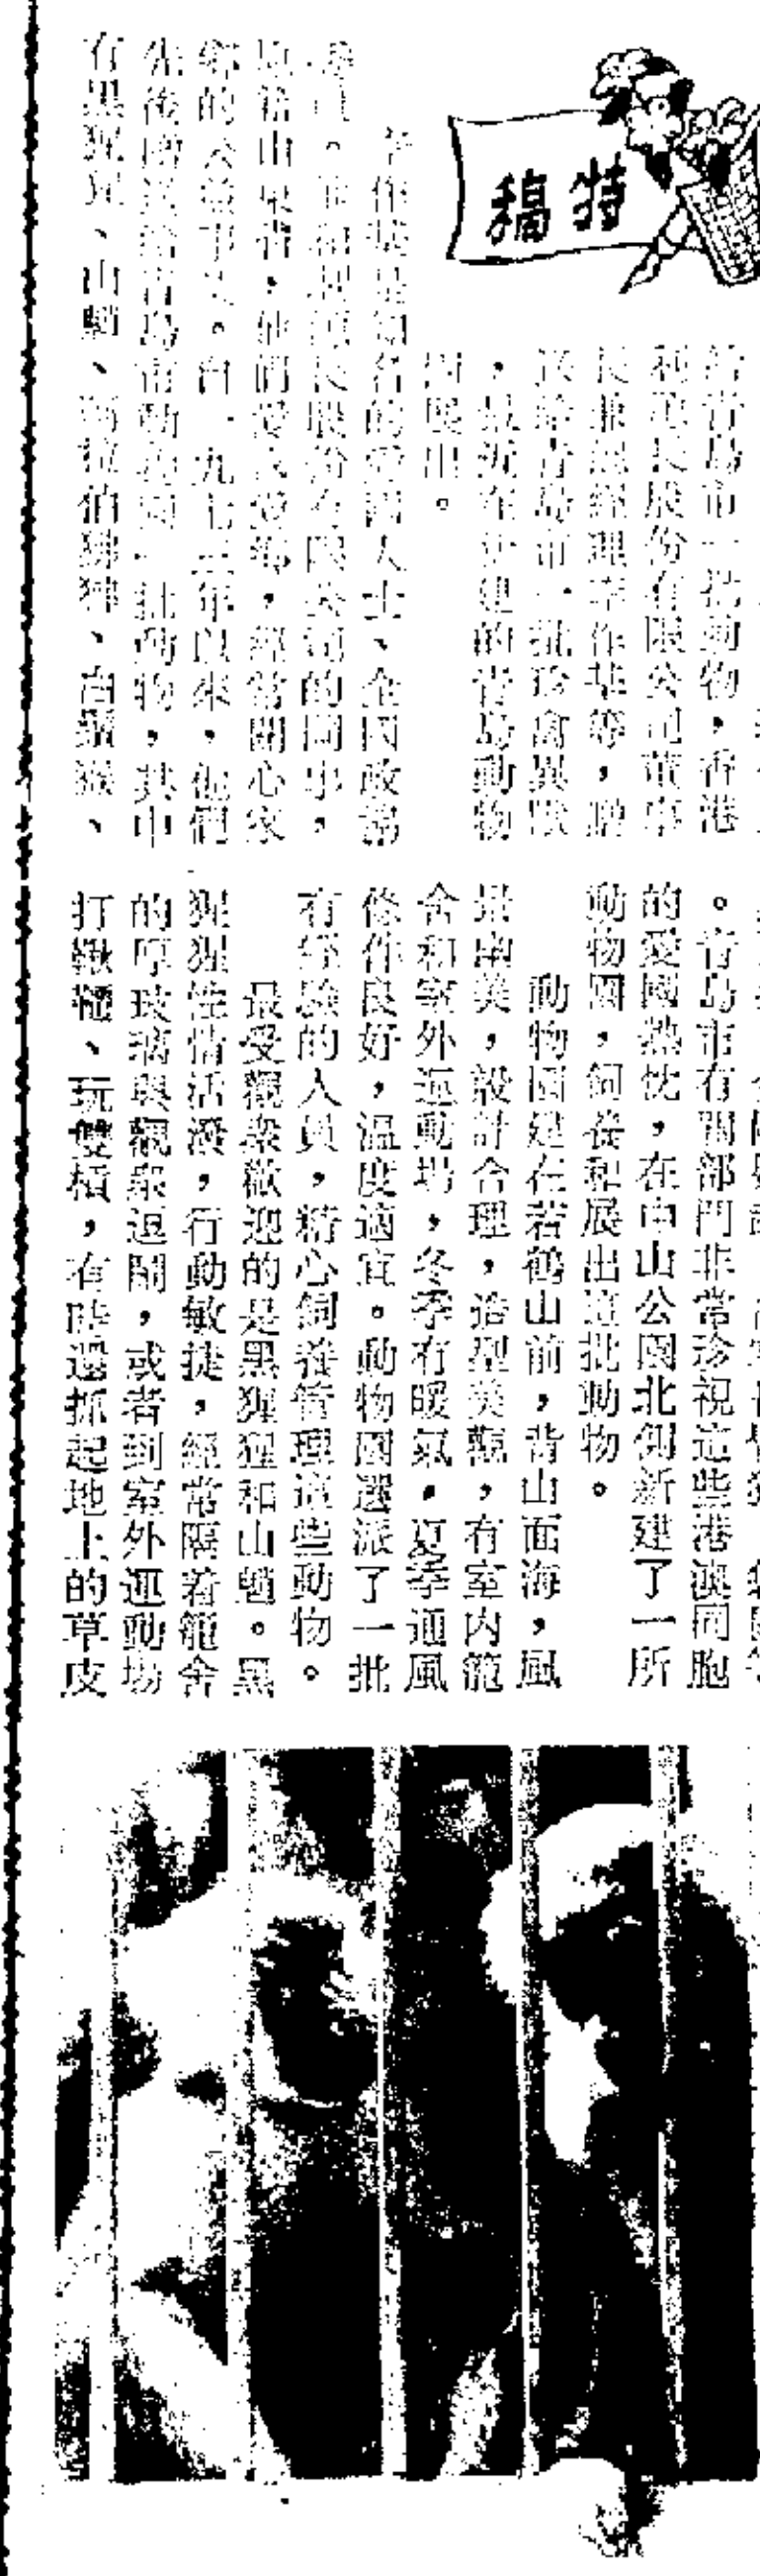 特稿
給青島市一批動物，香港
利港民股份有限公司董事
長兼總經理李作基等，贈
送給青島市一批珍禽異獸
，最近在新建的青島動物
園展出。
李作基是知名的愛國人士、全國政協
委員。他和港民股份有限公司的同事，
原籍山東省，他們愛國愛鄉，經常關心家
鄉的公益事業。自一九七三年以來，他們
先後贈送給青島市動物園一批動物，其中
有黑猩猩、山魈、阿拉伯狒狒、白 猴、
。青島市有關部門非常珍視這些港澳同胞
的愛國熱忱，在中山公園北側新建了一所
動物園，飼養和展出這批動物。
動物園建在若鶴山前，背山面海，風
景幽美，設計合理，造型美觀，有室內籠
舍和室外運動場，冬季有暖氣，夏季通風
條件良好，溫度適宜。動物園選派了一批
有經驗的人員，精心飼養管理這些動物。
最受觀衆歡迎的是黑猩猩和山魈。黑
猩猩性情活潑，行動敏捷，經常隔着籠舍
的厚玻璃與觀衆逗鬧，或者到室外運動場
打鞦韆、玩雙槓，有時還抓起地上的草皮